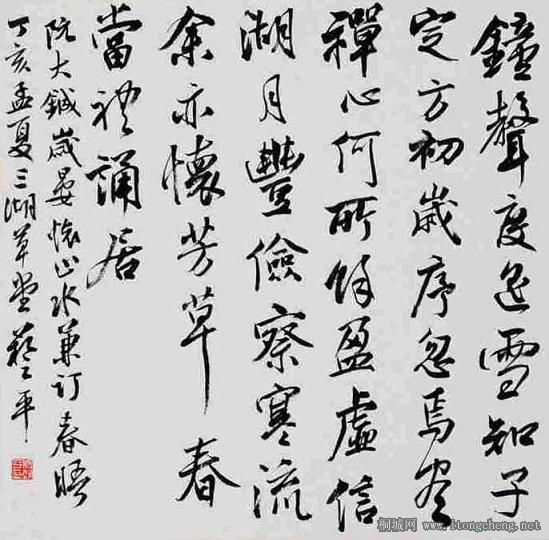 鐘聲度遥雪知子
定方初歲序忽焉盡
禪心何所餘盈虛信
湖月豐儉察寒流
余亦懷芳草春
當礼誦居
阮大鋮歲晏懷山水兼订春晤
丁亥孟夏三湖草堂 平
桐城网 www.itongcheng.net